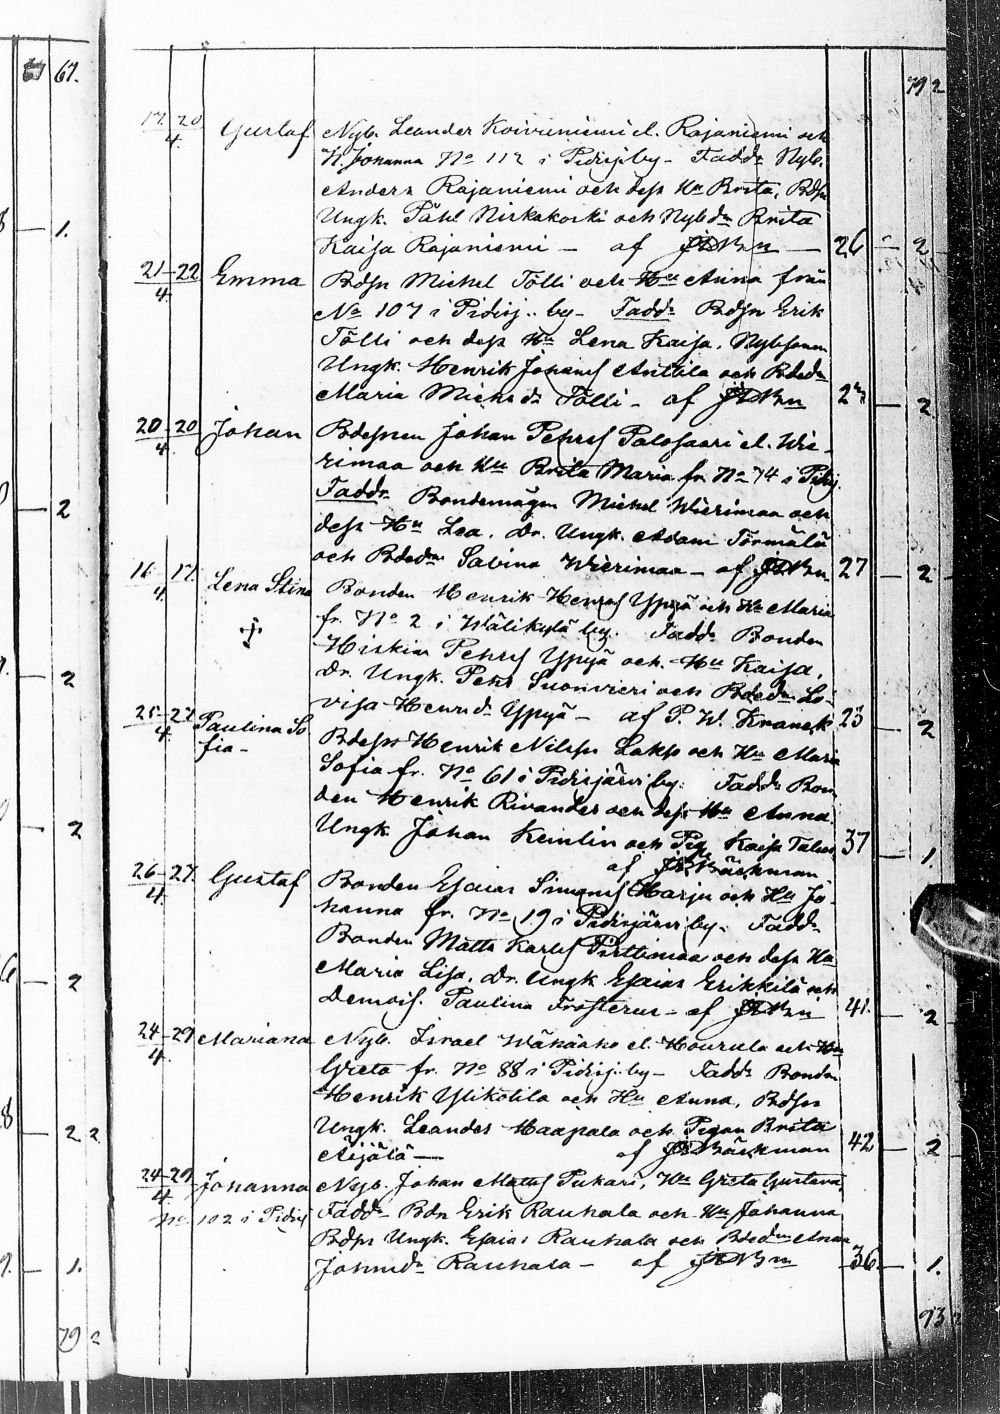 67.
79 2
17 20 Gustaf Nyb. Leander Koivuniemi el. Rajaniemi och
4. H. Johanna No 112 i Pidisj. by - Fadd. Nyb.
Anders Rajaniemi och dess Hu Brita, Bdsn
Ungk. Påhl Niskakoski och Nybdr Brita
1. Kaisa Rajaniemi - af JABmn 26 - 2
21-22 Emma Bdsn Michel Tölli och Hu Anna från
4. No 107 i Pidisj. by - Fadd. Bdsn Erik
Tölli och dess Hu Lena Kaisa. Nybsonen
Ungk. Henrik Johans Anttila och Bdedr
Maria Michsdr Tölli - af JABmn 2 - 2
20-20 Johan Bdesonen Johan Pehrs Palosaari el. Wie-
4. rimaa och Hu Brita Maria fr. No 74 i Pidisj.
2 Fadd. Bondemågen Michel Wierimaa och
dess Hu Lea, Dr. Ungk. Adam Törmälä
och Bdedr Sabina Wierimaa - af JABmn 27 - 2
16-17 Lena Stina Bonden Henrik Henrs Ypyä och Hu Maria
4. fr. No 2 i Wälikylä by. Fadd. Bonden
Hiskias Pehrs Ypyä och Hu Kaisa,
2 Dr. Ungk. Pehr Suonvieri och Bdedr Lo-
visa Henrsdr Ypyä - af P. W. Kranck 23 - 2
25-27 Paulina So Bdesn Henrik Nilsson Lakso och Hu Maria
4. fia - Sofia fr. No 61 i Pidisjärvi by. Fadd. Bon
den Henrik Rivander och dess Hu Anna,
2 Ungk. Johan Kemlin och Pig. Kaisa 37
af JABäckman 1.
26-27 Gustaf Bonden Esaias Simons Harju och Hu Jo-
4. hanna fr. No 19 i Pidisjärvi by. Fadd.
Bonden Matts Karls Pirttimaa och dess Hu
2 Maria Lisa, Dr. Ungk Esaias Erikkilä och
Demois. Paulina Frosterus - af JABmn 41. - 2
24-29 Mariana Nyb. Israel Wähäaho el. Hourula och Hu
4. Greta fr. No 88 i Pidisj. by - Fadd. Bonden
Henrik Ylikotila och Hu Anna, Bdsn
2 2 Ungk. Leander Haapala och Pigan Brita
Äijälä - af JABäckman 42 - 2
24-29 Johanna Nyb. Johan Matts Pukari, Hu Greta Gustava,
4. No 102 i Pidisj Fadd. Bdn Erik Rauhala och Hu Johanna
Bdsn Ungk. Esaias Rauhala och Bdedr Anna
1. Johnsdr Rauhala - af JABmn 36. - 1.
79 2
93 2